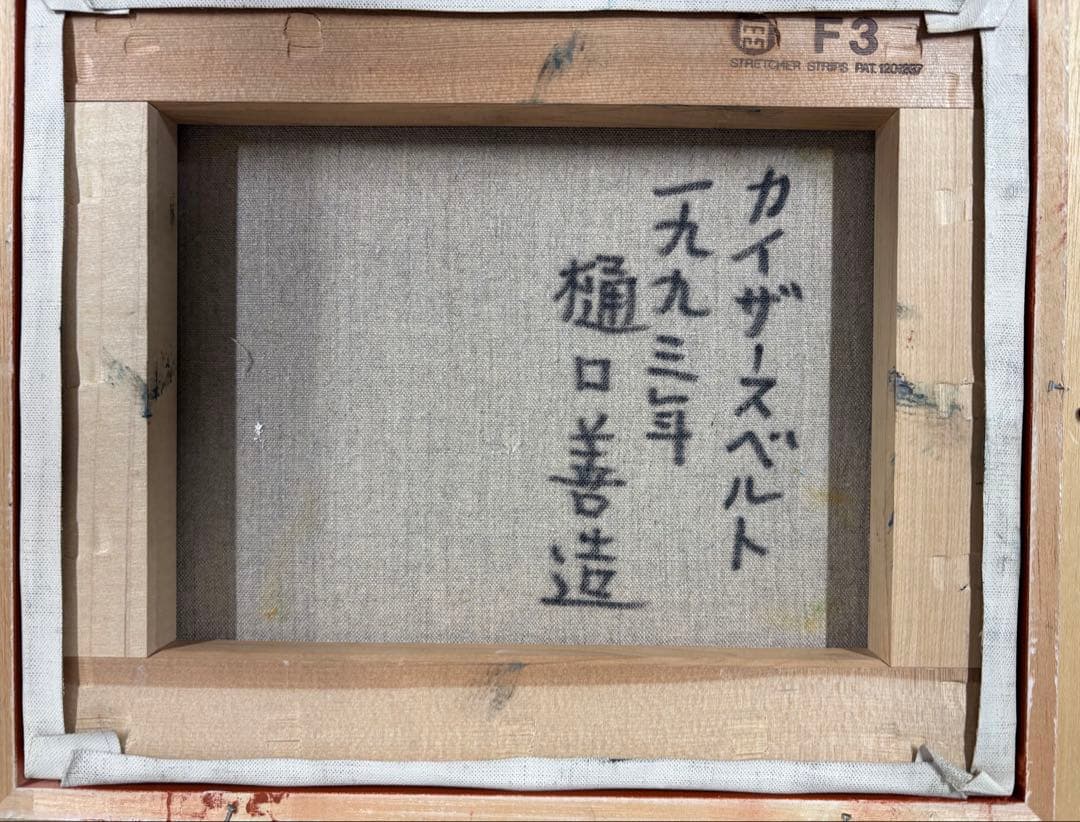 F3
STRETCHER STRIPS PAT.1201237
カイザースベルト
一九九三年
樋口善造